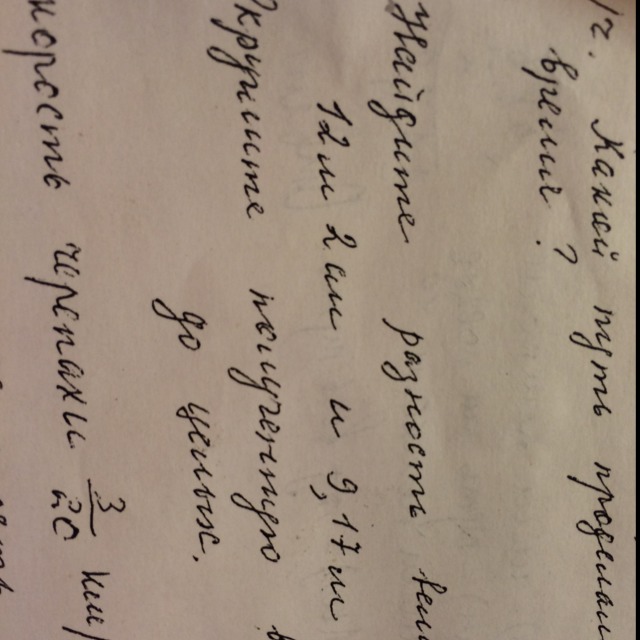 /г. Какой путь проделал
время ?
Найдите разность
12 м 2 см и 9,17 м
Округлите полученную
до целых.
скорость черепахи 3/20 км/